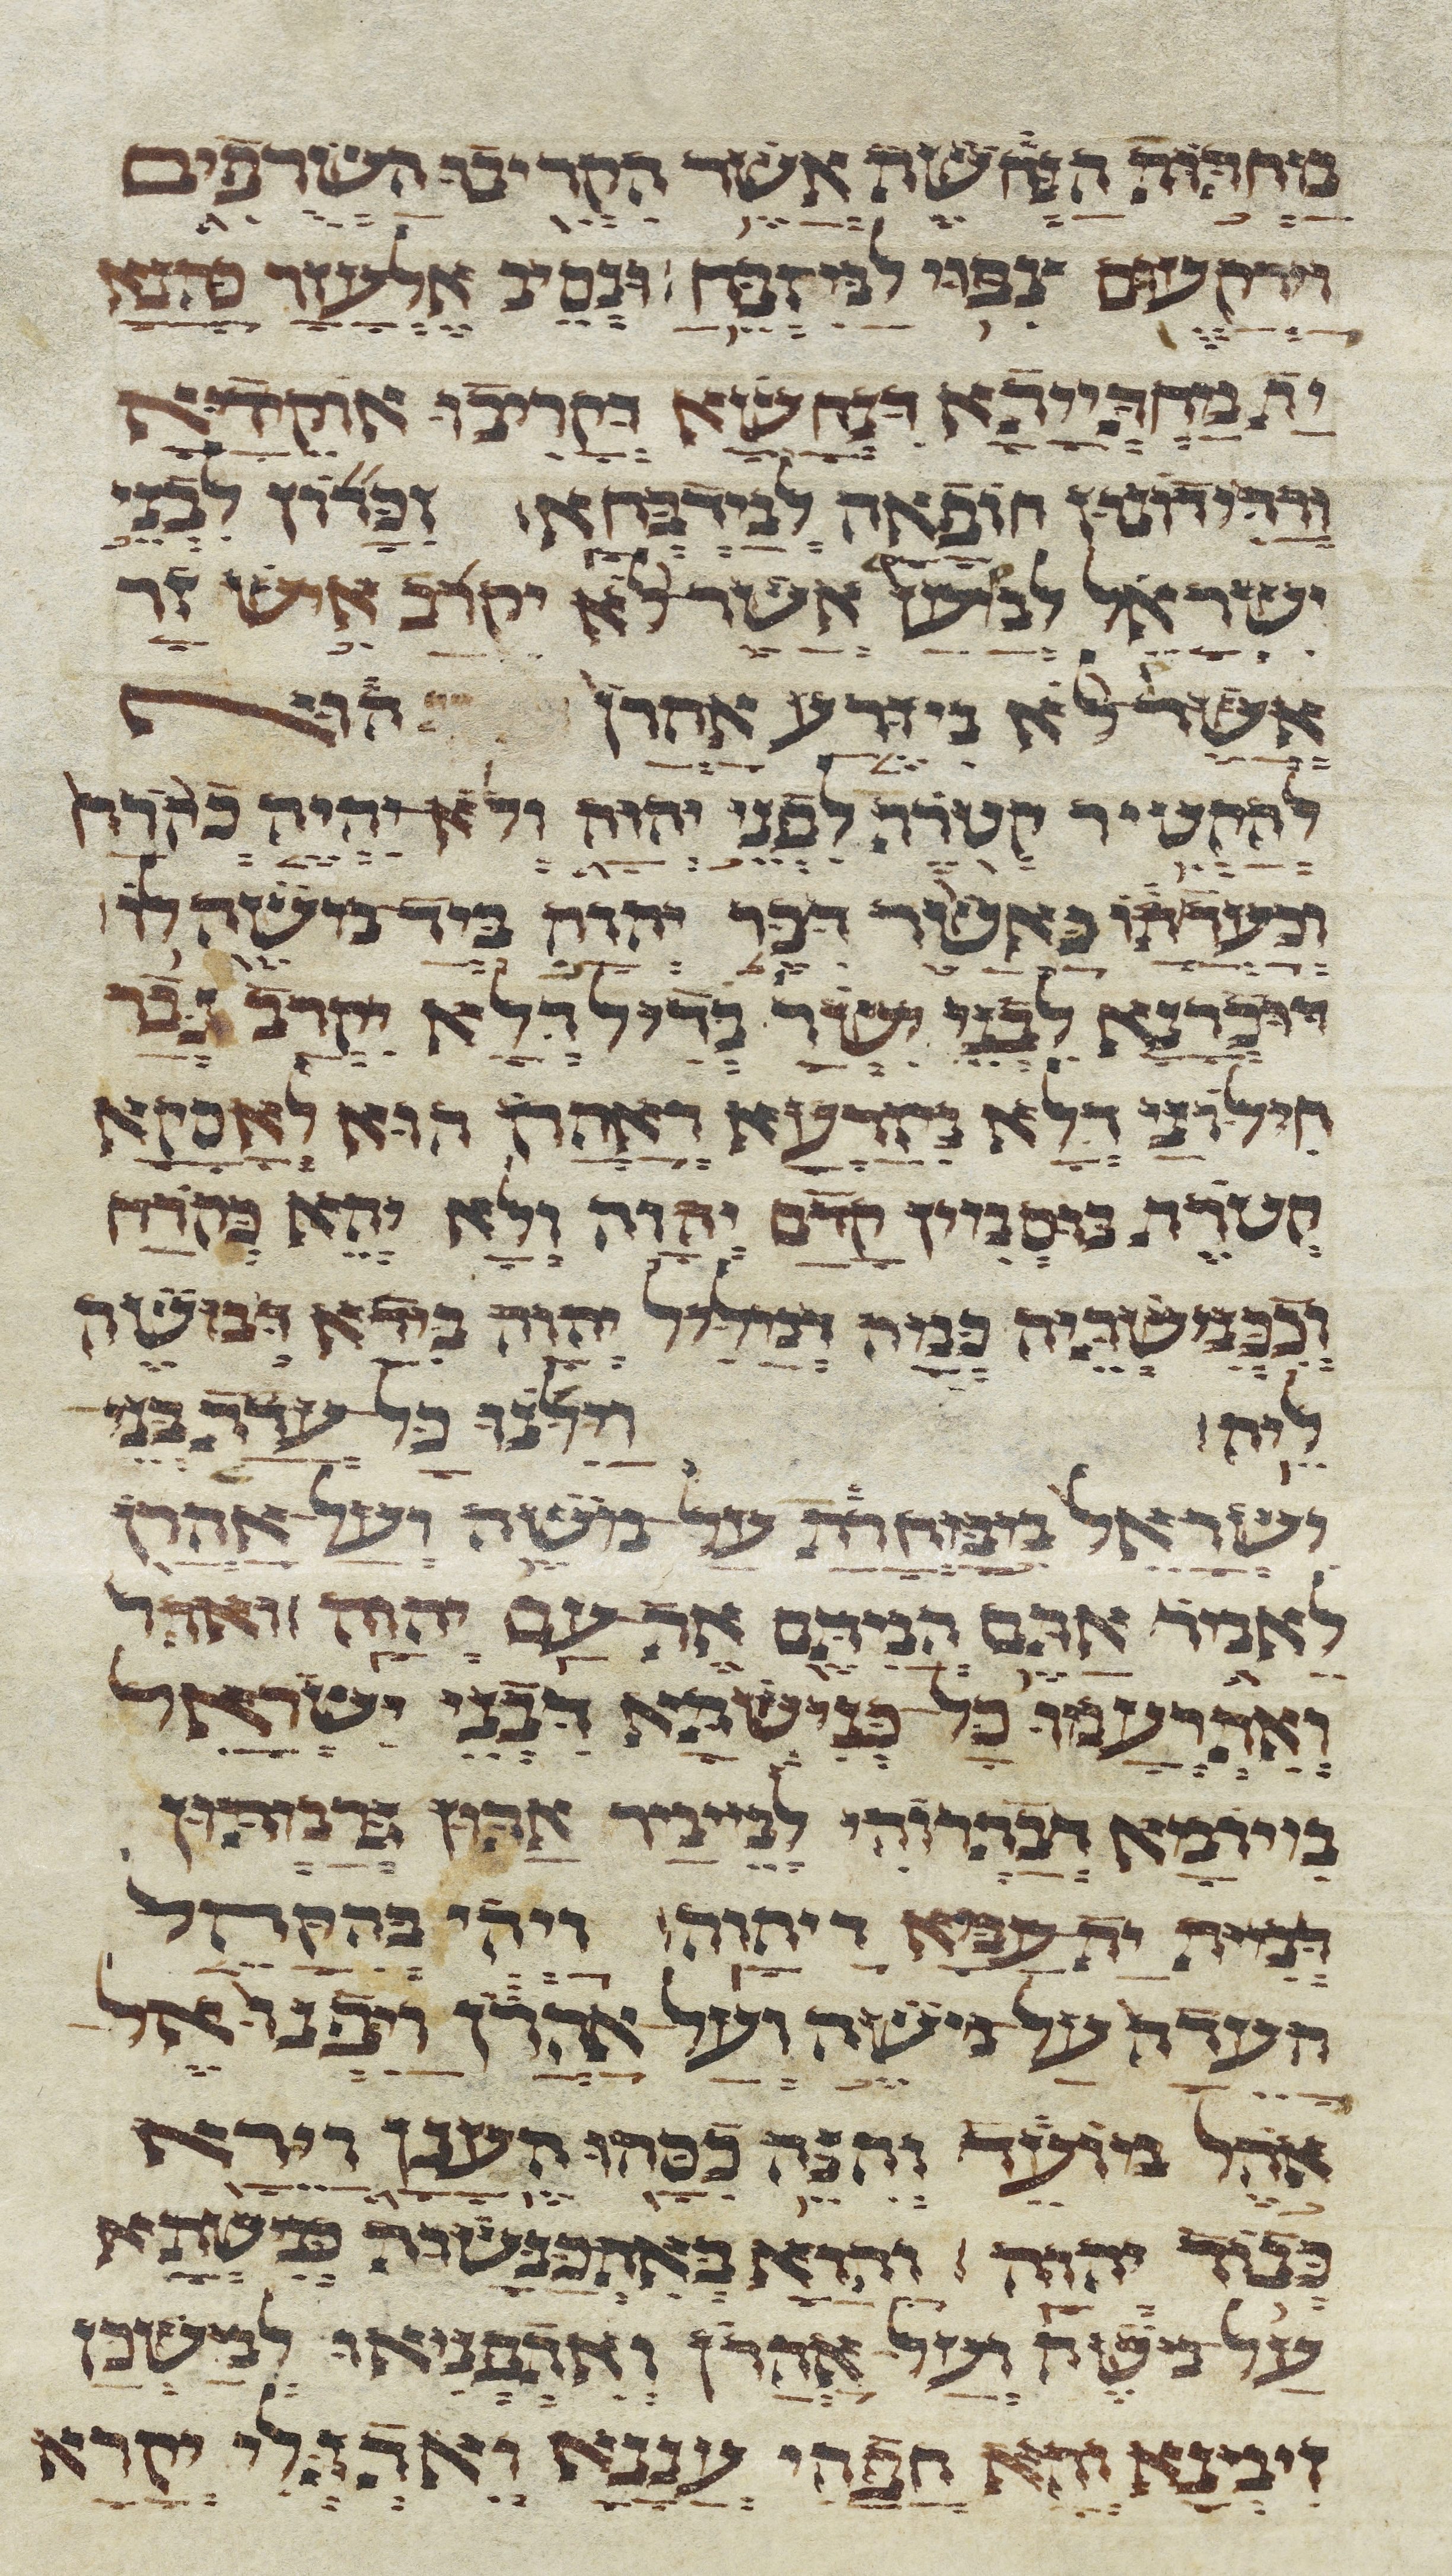 מחתות הנחשת אשר הקריבו השרפים
וירקעום צפוי למזבח ונסיב אלעזר כהנא
ית מחתייתא דנחשא דקריבו אוקדיא
ורדידונון חופאה למידבחא זכרון לבני
ישראל למען אשר לא יקרב איש זר
אשר לא מזרע אהרן הוי
להקטיר קטרת לפני יהוה ולא יהיה כקרח
וכעדתו כאשר דבר יהוה ביד משה לו
דוכרנא לבני ישר בדיל דלא יקרב גבר
חילוני דלא מזרעא דאהרן הוא לאסקא
קטרת בוסמין קדם יהוה ולא יהא כקרח
וככנישתיה כמה דמליל יהוה בידא דמשה
ליה וילנו כל עדת בני
ישראל ממחרת על משה ועל אהרן
לאמר אתם המתם את עם יהוה ואתר
ואתרעמו כל כנישתא דבני ישראל
ביומא דבתרוהי למימר אתון גרמתון
דמית ית עמא דיהוה ויהי בהקהל
העדה על משה ועל אהרן ויפנו אל
אהל מועד והנה כסהו הענן וירא
כבוד יהוה והוה באתכנשות כנשתא
על משה ועל אהרן ואתפניאו למשכן
זימנא והא חפהי עננא ואתגלי יקרא